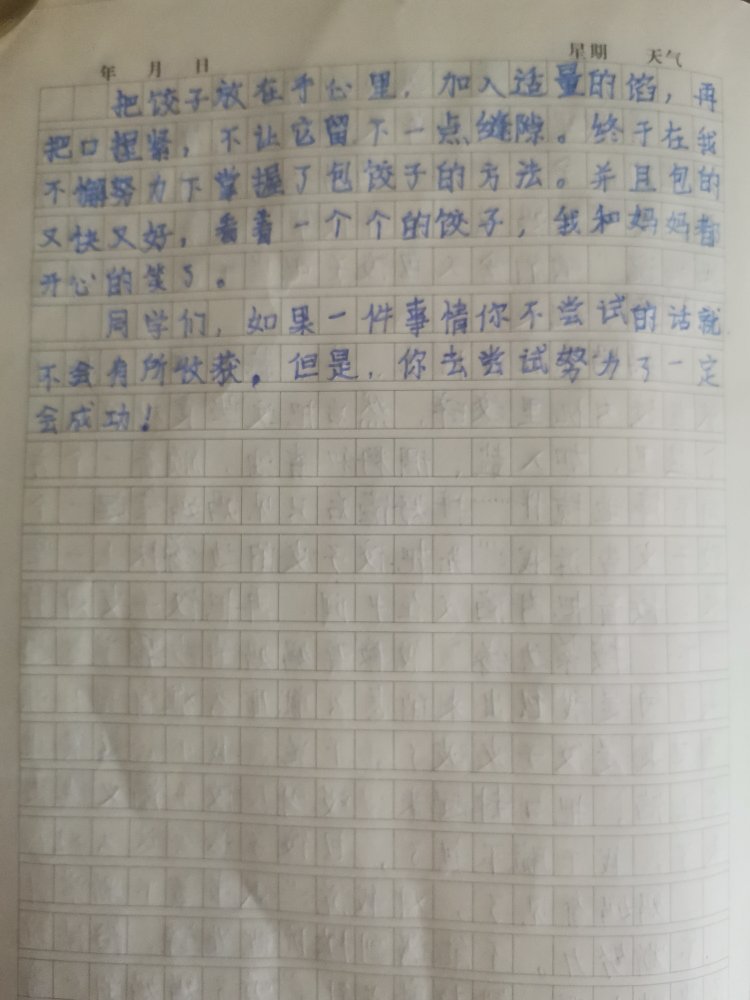 年 月 日 星期 天气
把饺子放在手心里，加入适量的馅，再
把口捏紧，不让它留下一点缝隙。终于在我
不懈努力下掌握了包饺子的方法。并且包的
又快又好，看着一个个的饺子，我和妈妈都
开心的笑了。
同学们，如果一件事情你不尝试的话就
不会有所收获。但是，你去尝试努力了一定
会成功！